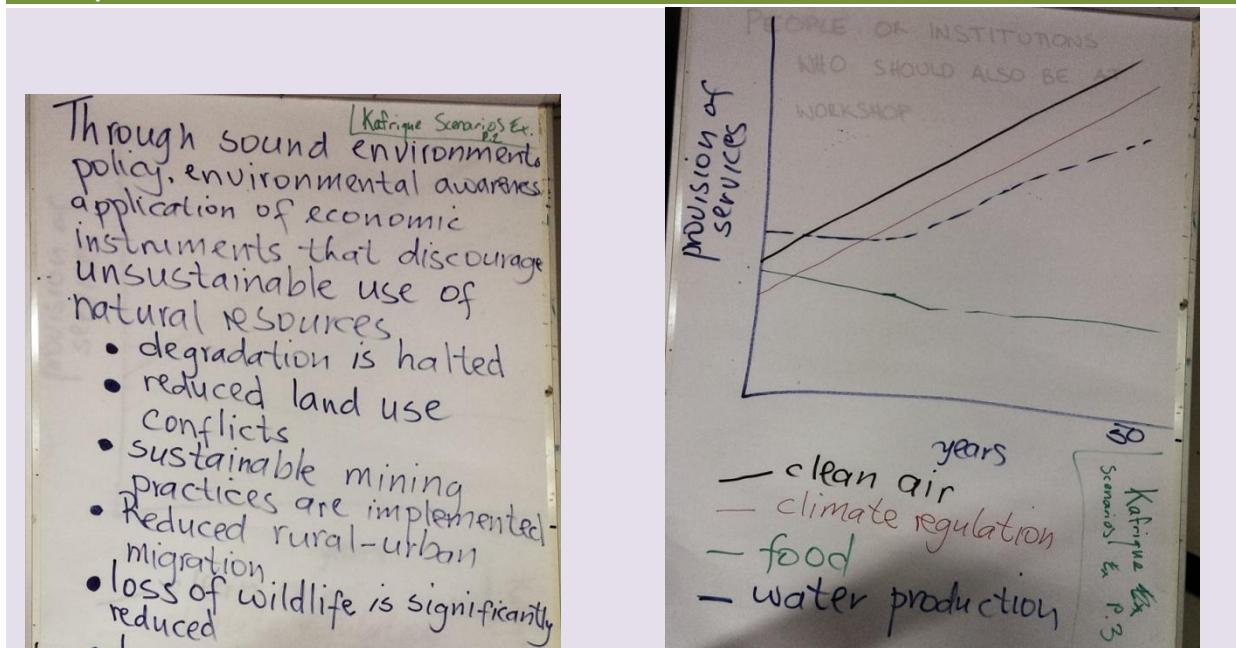 Kafrique Scenarios Ex.
P.2
Through sound environment
policy, environmental awareness
application of economic
instruments that discourage
unsustainable use of
natural resources
• degradation is halted
• reduced land use
conflicts
• sustainable mining
practices are implemented
• Reduced rural-urban
migration
• loss of wildlife is significantly
reduced
PEOPLE OR INSTITUTIONS
WHO SHOULD ALSO BE AT
WORKSHOP
provision of
services
years
— clean air
— climate regulation
— food
— water production
Kafrique
Scenarios Ex P.3